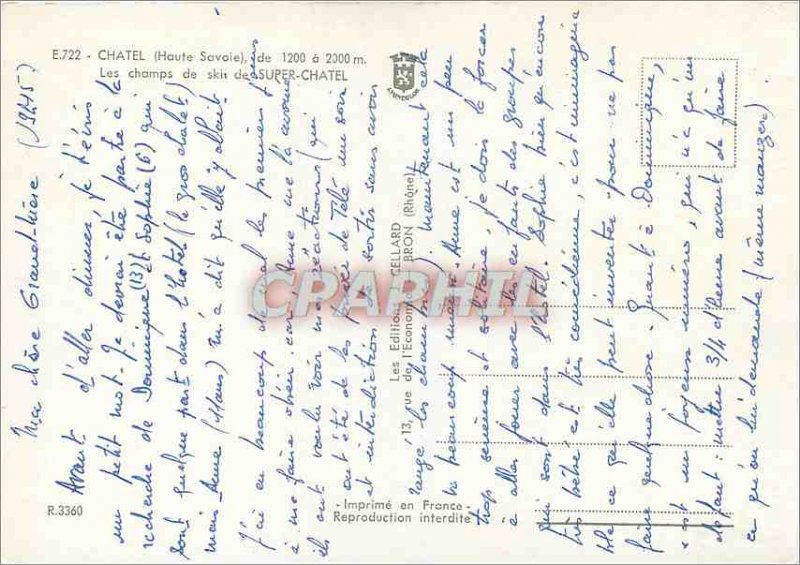 E.722 - CHATEL (Haute Savoie), de 1200 à 2000 m.
Les champs de ski de SUPER-CHATEL
Les Editions CELLARD
13, rue de l'Economie BRON (Rhône)
R.3360
Imprimé en France
Reproduction interdite
CPARPHIL
Ma chère Grand-Mère (19h45)
Avant d'aller dîner, je t'écris
un petit mot. Je devrais être partie à la
recherche de Dominique (13) et Sophie (6) qui
sont quelque part dans l'hotel (le gros chalet)
mais Anne (11 ans) m'a dit qu'elle y allait
J'ai eu beaucoup de mal les premiers jours
à me faire obéir car Anne me l'a avoué
ils ont voulu voir mes réactions (qui
ont été de les priver de Télé un soir
et interdiction de sortir sans avoir
rangé les chambres). Maintenant cela
va beaucoup mieux. Anne est un peu
trop sereine et solitaire, je dois la forcer
à aller jouer avec les enfants des groupes
qui sont dans l'hotel. Sophie bien qu'encore
très bébé, est très comédienne, c'est inimagina
ble ce qu'elle peut inventer pour ne pas
faire quelque chose. Quant à Dominique,
c'est un joyeux numéro, qui n'a qu'un
défaut : mettre 3/4 d'heure avant de faire
ce qu'on lui demande (même manger).